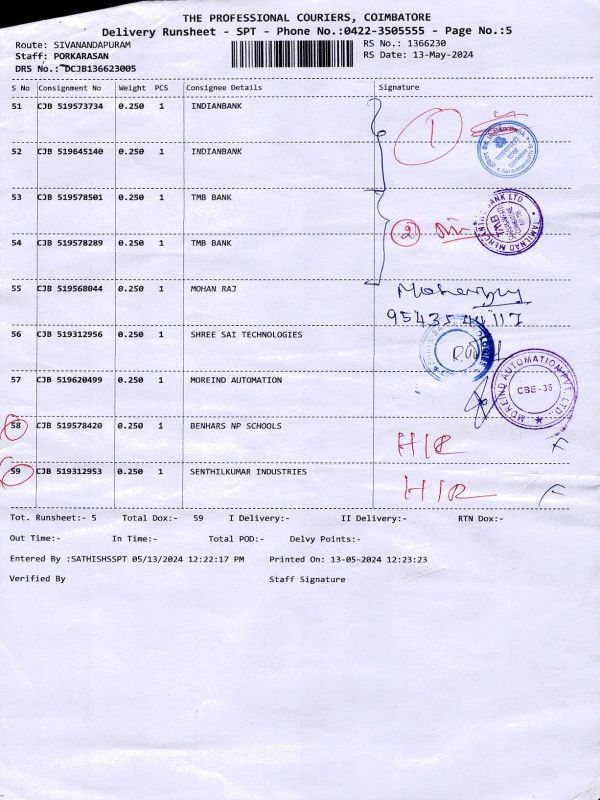 THE PROFESSIONAL COURIERS, COIMBATORE
Delivery Runsheet - SPT - Phone No.:0422-3505555 - Page No.:5
Route: SIVANANDAPURAM RS No.: 1366230
Staff: PORKARASAN RS Date: 13-May-2024
DRS No.: DCJB136623005
S No Consignment No Weight PCS Consignee Details Signature
51 CJB 519573734 0.250 1 INDIANBANK
1
52 CJB 519645140 0.250 1 INDIANBANK
53 CJB 519578501 0.250 1 TMB BANK
2
TAMILNAD MERCANTILE BANK LTD
TMB
54 CJB 519578289 0.250 1 TMB BANK
55 CJB 519568044 0.250 1 MOHAN RAJ
56 CJB 519312956 0.250 1 SHREE SAI TECHNOLOGIES
57 CJB 519620499 0.250 1 MOREIND AUTOMATION
MOREIND AUTOMATION PVT. LTD.
CBE-35
58 CJB 519578420 0.250 1 BENHARS NP SCHOOLS
59 CJB 519312953 0.250 1 SENTHILKUMAR INDUSTRIES
Tot. Runsheet:- 5 Total Dox:- 59 I Delivery:- II Delivery:- RTN Dox:-
Out Time:- In Time:- Total POD:- Delvy Points:-
Entered By :SATHISHSSPT 05/13/2024 12:22:17 PM Printed On: 13-05-2024 12:23:23
Verified By Staff Signature